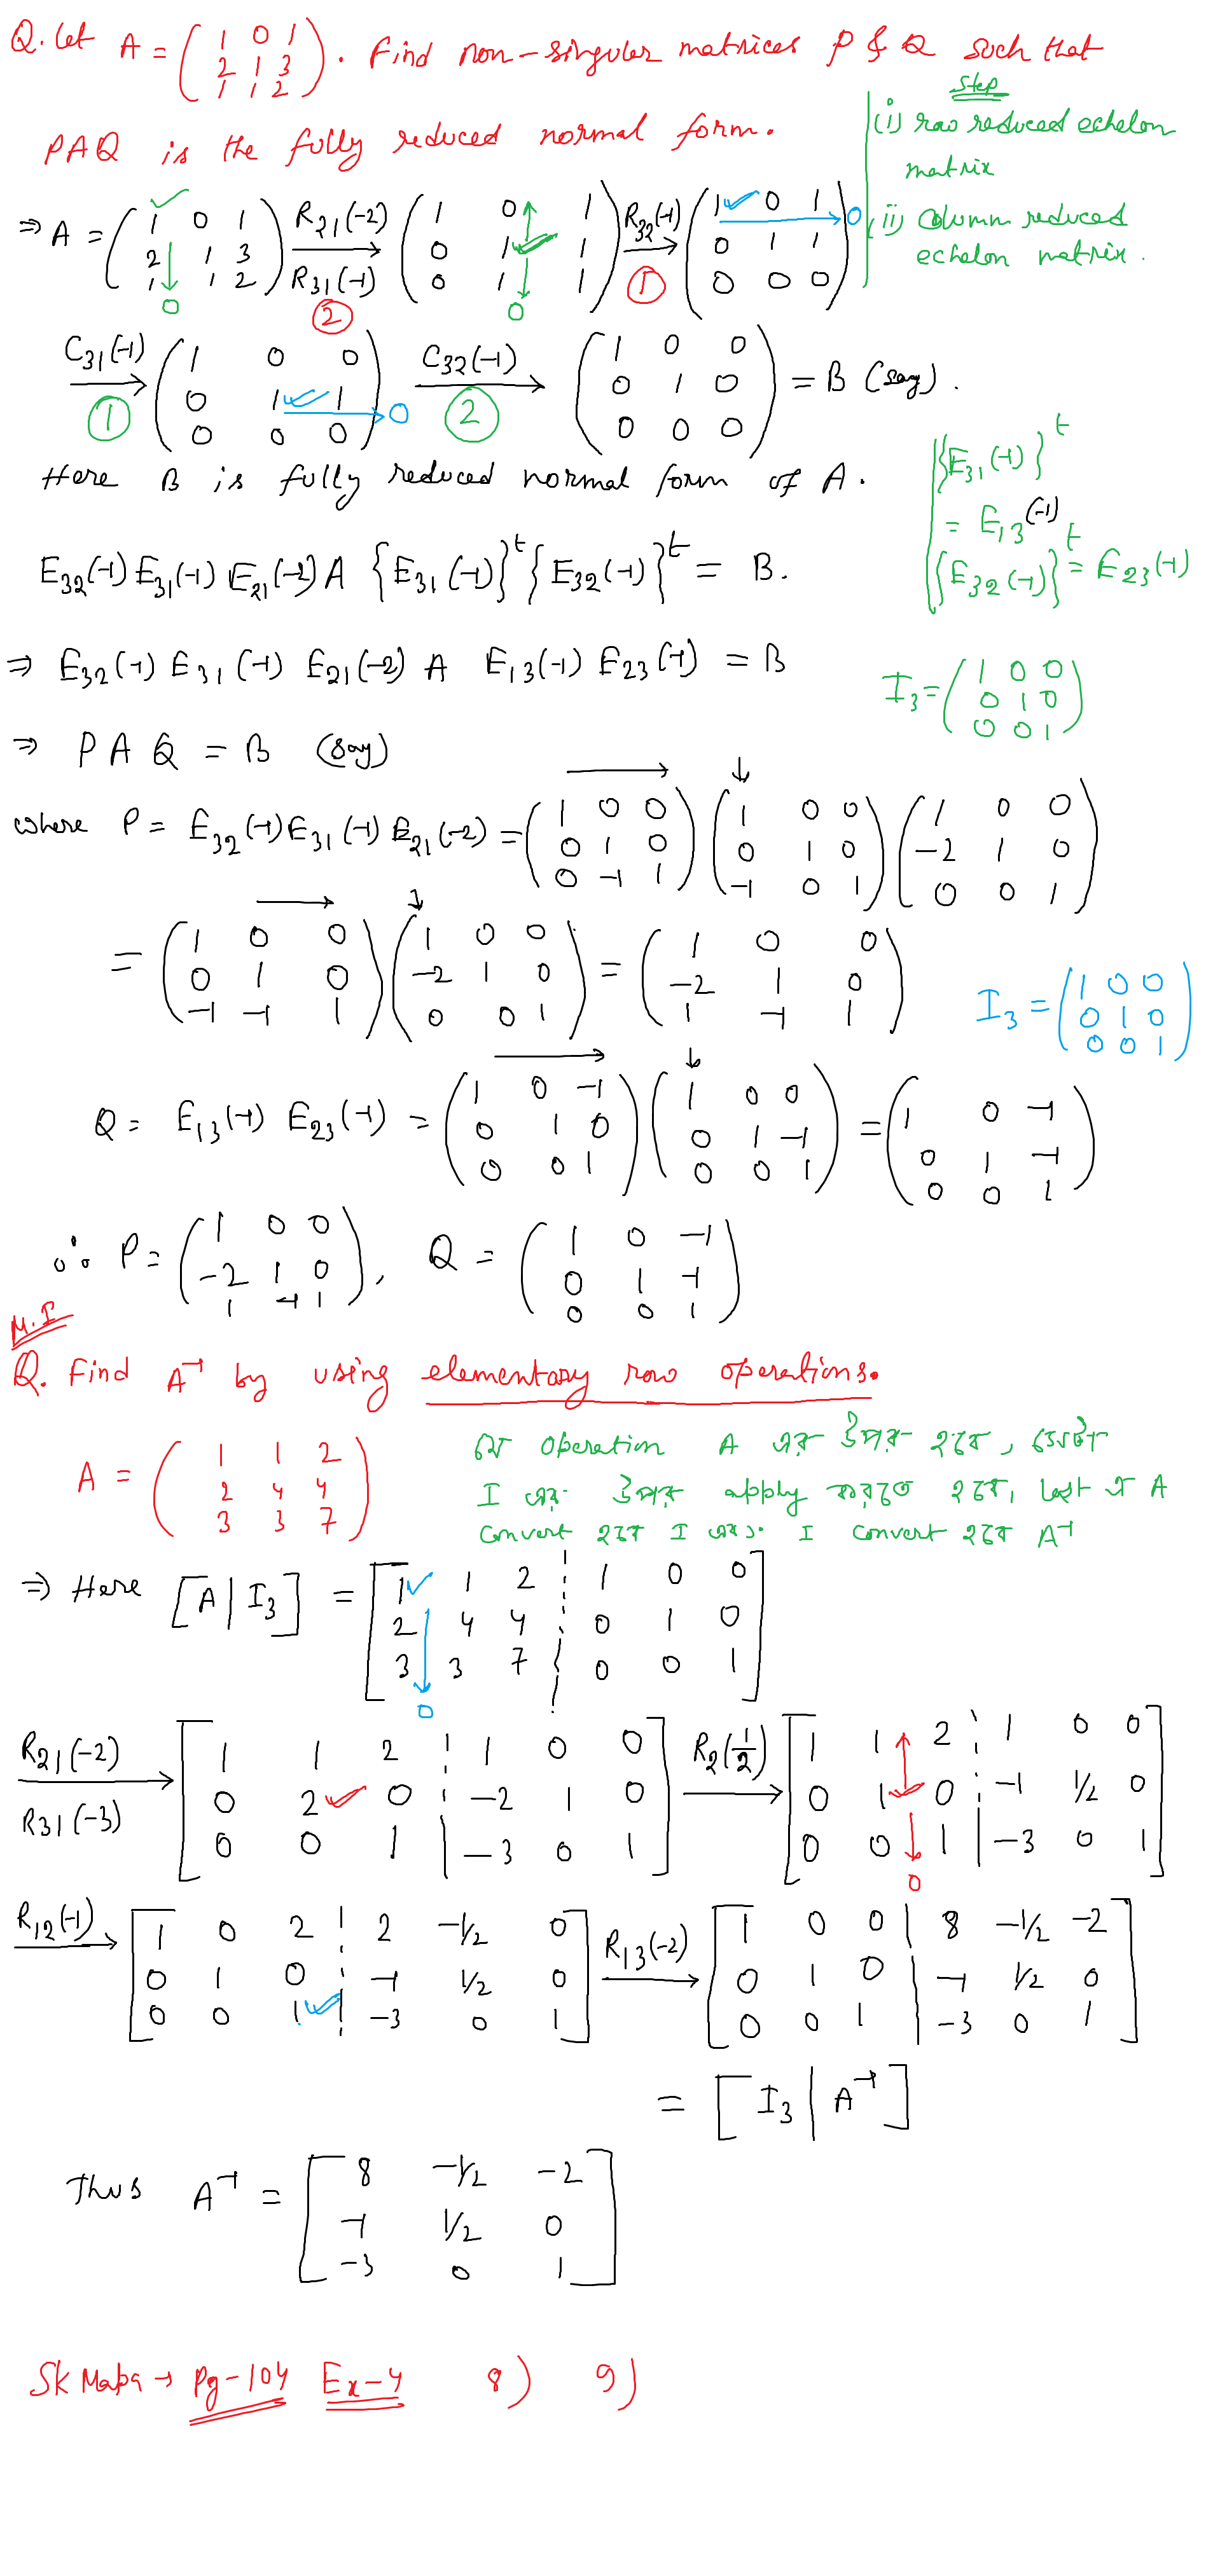 Q. Let A = ( 1 0 1 / 2 1 3 / 1 1 2 ). Find non-singular matrices P & Q such that
PAQ is the fully reduced normal form.
Step
(i) row reduced echelon
matrix
(ii) Column reduced
echelon matrix.
⇒ A = ( 1 0 1 / 2 1 3 / 1 1 2 ) R21(-2) R31(-1) → ② ( 1 0 1 / 0 1 1 / 0 1 1 ) R32(-1) → ① ( 1 0 1 / 0 1 1 / 0 0 0 )
0 0 0
C31(-1) → ① ( 1 0 0 / 0 1 1 / 0 0 0 ) 0 C32(-1) → ② ( 1 0 0 / 0 1 0 / 0 0 0 ) = B (say).
Here B is fully reduced normal form of A.
{E31(-1)}^t
= E13(-1)
{E32(-1)}^t = E23(-1)
E32(-1) E31(-1) E21(-2) A {E31(-1)}^t {E32(-1)}^t = B.
⇒ E32(-1) E31(-1) E21(-2) A E13(-1) E23(-1) = B
I3 = ( 1 0 0 / 0 1 0 / 0 0 1 )
⇒ P A Q = B (say)
where P = E32(-1) E31(-1) E21(-2) = ( 1 0 0 / 0 1 0 / 0 -1 1 ) ( 1 0 0 / 0 1 0 / -1 0 1 ) ( 1 0 0 / -2 1 0 / 0 0 1 )
= ( 1 0 0 / 0 1 0 / -1 -1 1 ) ( 1 0 0 / -2 1 0 / 0 0 1 ) = ( 1 0 0 / -2 1 0 / 1 -1 1 )
I3 = ( 1 0 0 / 0 1 0 / 0 0 1 )
Q = E13(-1) E23(-1) = ( 1 0 -1 / 0 1 0 / 0 0 1 ) ( 1 0 0 / 0 1 -1 / 0 0 1 ) = ( 1 0 -1 / 0 1 -1 / 0 0 1 )
∴ P = ( 1 0 0 / -2 1 0 / 1 -1 1 ), Q = ( 1 0 -1 / 0 1 -1 / 0 0 1 )
M.I
Q. Find A⁻¹ by using elementary row operations.
A = ( 1 1 2 / 2 4 4 / 3 3 7 )
যে operation A এর উপর হবে, সেটা
I এর উপর apply করতে হবে, last এ A
convert হবে I এবং I convert হবে A⁻¹
⇒ Here [A | I3] = [ 1 1 2 | 1 0 0 / 2 4 4 | 0 1 0 / 3 3 7 | 0 0 1 ]
0
R21(-2) R31(-3) → [ 1 1 2 | 1 0 0 / 0 2 0 | -2 1 0 / 0 0 1 | -3 0 1 ] R2(1/2) → [ 1 1 2 | 1 0 0 / 0 1 0 | -1 1/2 0 / 0 0 1 | -3 0 1 ]
0
R12(-1) → [ 1 0 2 | 2 -1/2 0 / 0 1 0 | -1 1/2 0 / 0 0 1 | -3 0 1 ] R13(-2) → [ 1 0 0 | 8 -1/2 -2 / 0 1 0 | -1 1/2 0 / 0 0 1 | -3 0 1 ]
= [ I3 | A⁻¹ ]
Thus A⁻¹ = [ 8 -1/2 -2 / -1 1/2 0 / -3 0 1 ]
SK Mapa → Pg-104 Ex-4 8) 9)